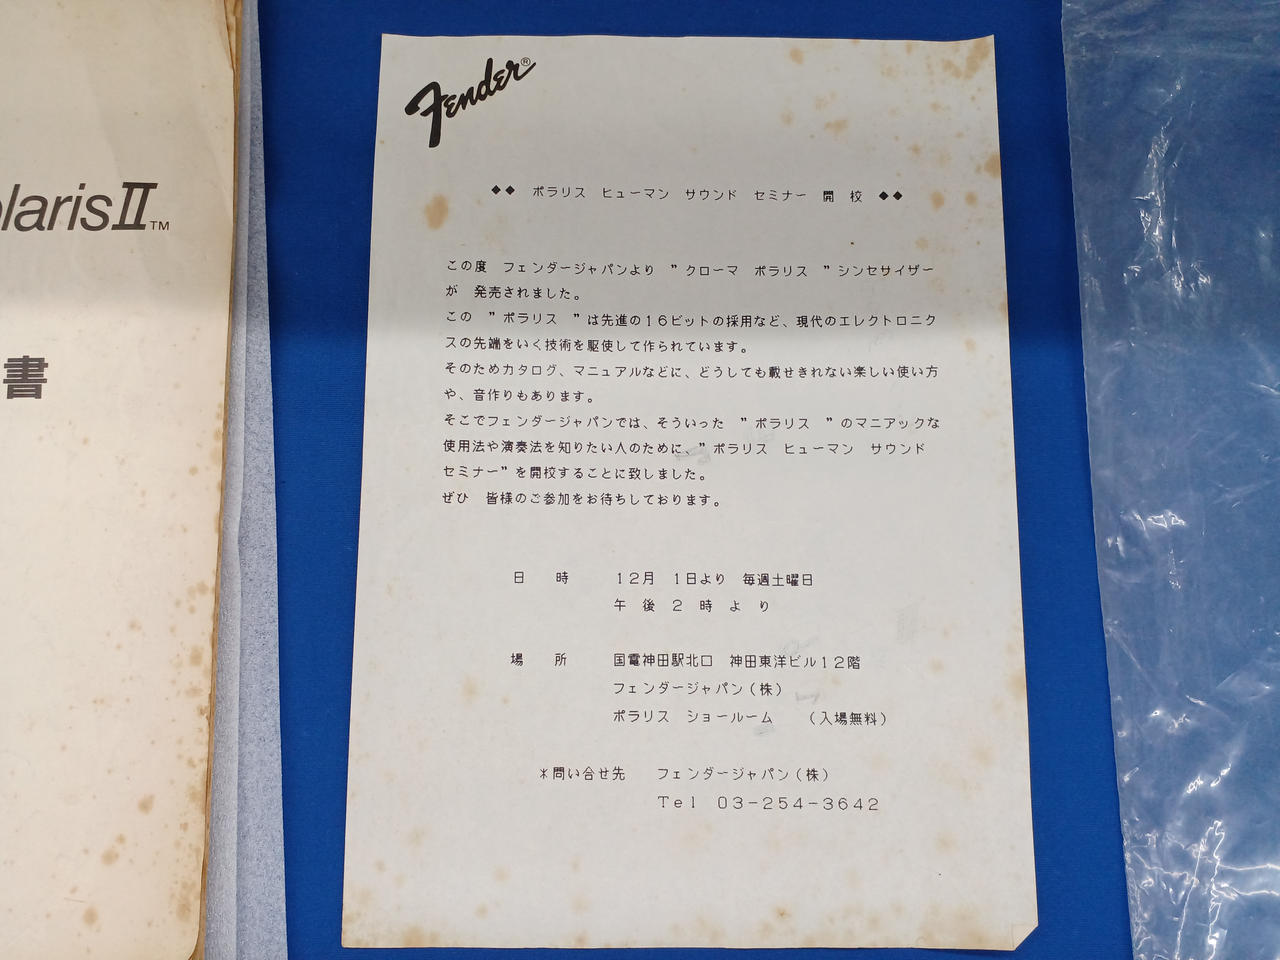 olarisII™
書
Fender®
◆◆ ポラリス ヒューマン サウンド セミナー 開 校 ◆◆
この度 フェンダージャパンより ”クローマ ポラリス ”シンセサイザー
が 発売されました。
この ”ポラリス ”は先進の16ビットの採用など、現代のエレクトロニク
スの先端をいく技術を駆使して作られています。
そのためカタログ、マニュアルなどに、どうしても載せきれない楽しい使い方
や、音作りもあります。
そこでフェンダージャパンでは、そういった ”ポラリス ”のマニアックな
使用法や演奏法を知りたい人のために、”ポラリス ヒューマン サウンド
セミナー”を開校することに致しました。
ぜひ 皆様のご参加をお待ちしております。
日 時 12月 1日より 毎週土曜日
午 後 2 時 よ り
場 所 国電神田駅北口 神田東洋ビル12階
フェンダージャパン(株)
ポラリス ショールーム (入場無料)
*問い合せ先 フェンダージャパン(株)
Tel 03-254-3642